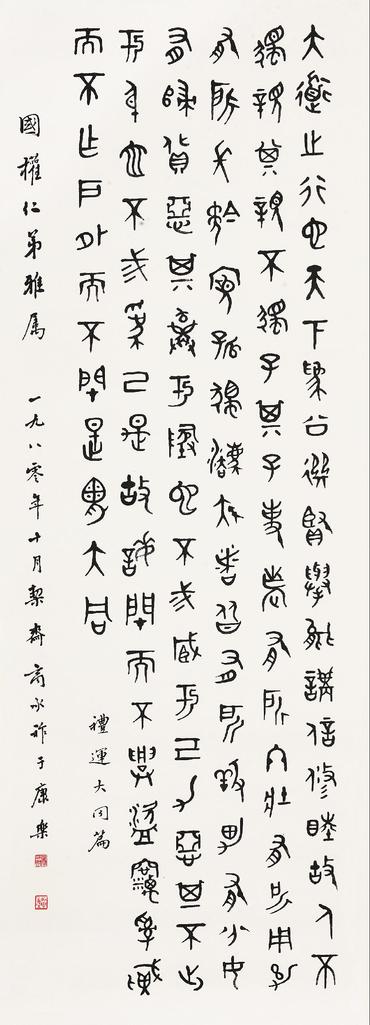 大道之行也天下為公選賢與能講信修睦故人不
獨親其親不獨子其子使老有所終壯有所用幼
有所長矜寡孤獨廢疾者皆有所養男有分女
有歸貨惡其棄于地也不必藏于己力惡其不出
于身也不必為己是故謀閉而不興盜竊亂賊
而不作戶外而不閉是謂大同
禮運大同篇
國權仁弟雅属 一九八零年十月契齋商承祚于康樂